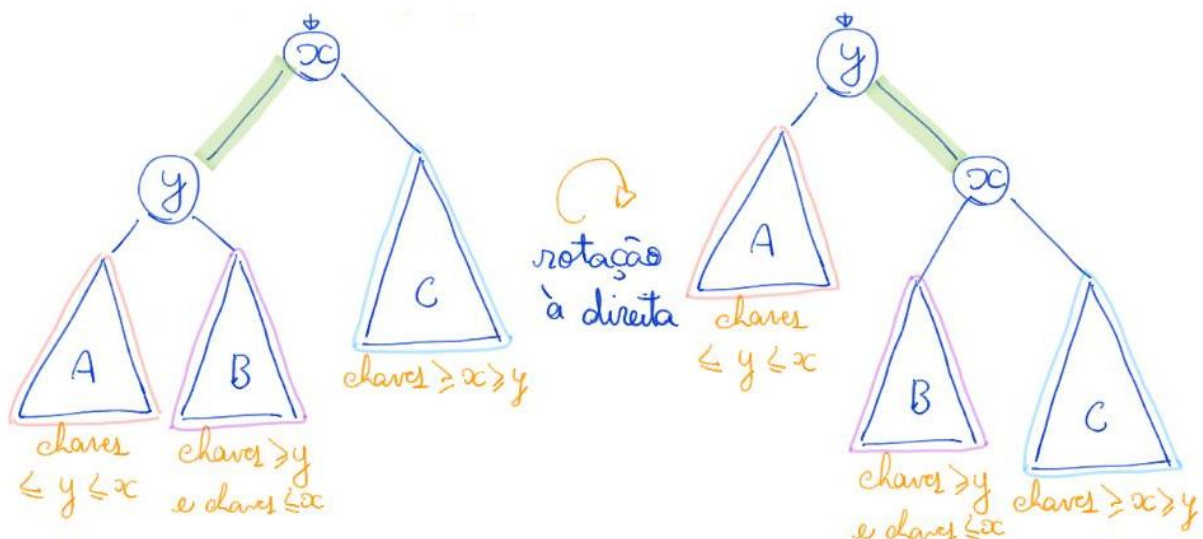 x
y
A
B
C
chaves
≤ y ≤ x
chaves ≥ y
e chaves ≤ x
chaves ≥ x ≥ y
rotação
à direita
y
x
A
B
C
chaves
≤ y ≤ x
chaves ≥ y
e chaves ≤ x
chaves ≥ x ≥ y